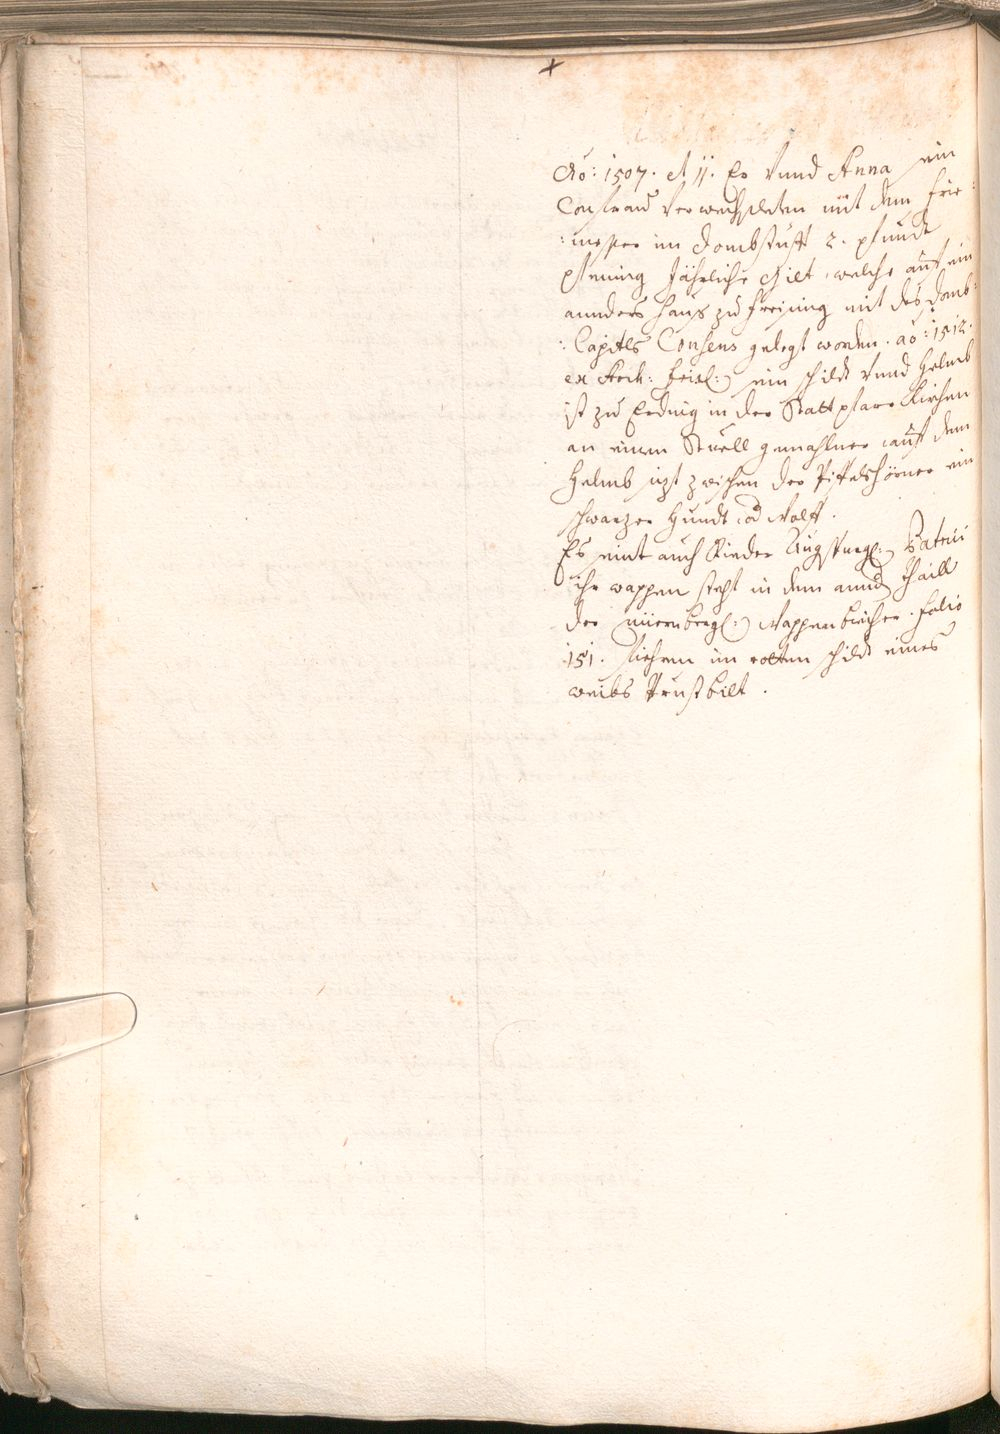 +
Aõ: 1507. et 11. Er vnnd Anna ein
Conſraw verwechſleten mit dem frie=
:messer im Dombstüfft 2. pfundt
pfening Jährliche Gilt, welche auf ein
annders hauß zu Freising mit des Domb=
:Capitls Consens gelegt worden. aõ: 1512.
ex Arch: frisl: ein schildt vnnd Helmb
ist zu Erding in der Statt pfarr Kirchen
an einem Stuell gemahlner auf dem
Helmb sizt zwischen der Piffelshörner ein
schwarzer Hundt od Wolff.
Es sint auch Rieder Augspurgl: Patricii
ihr wappen steht in dem annd thaill
des nürnbergl: Wappenbüecher. folio
151. fiehren im rotten schildt eines
weibs Prustbilt.